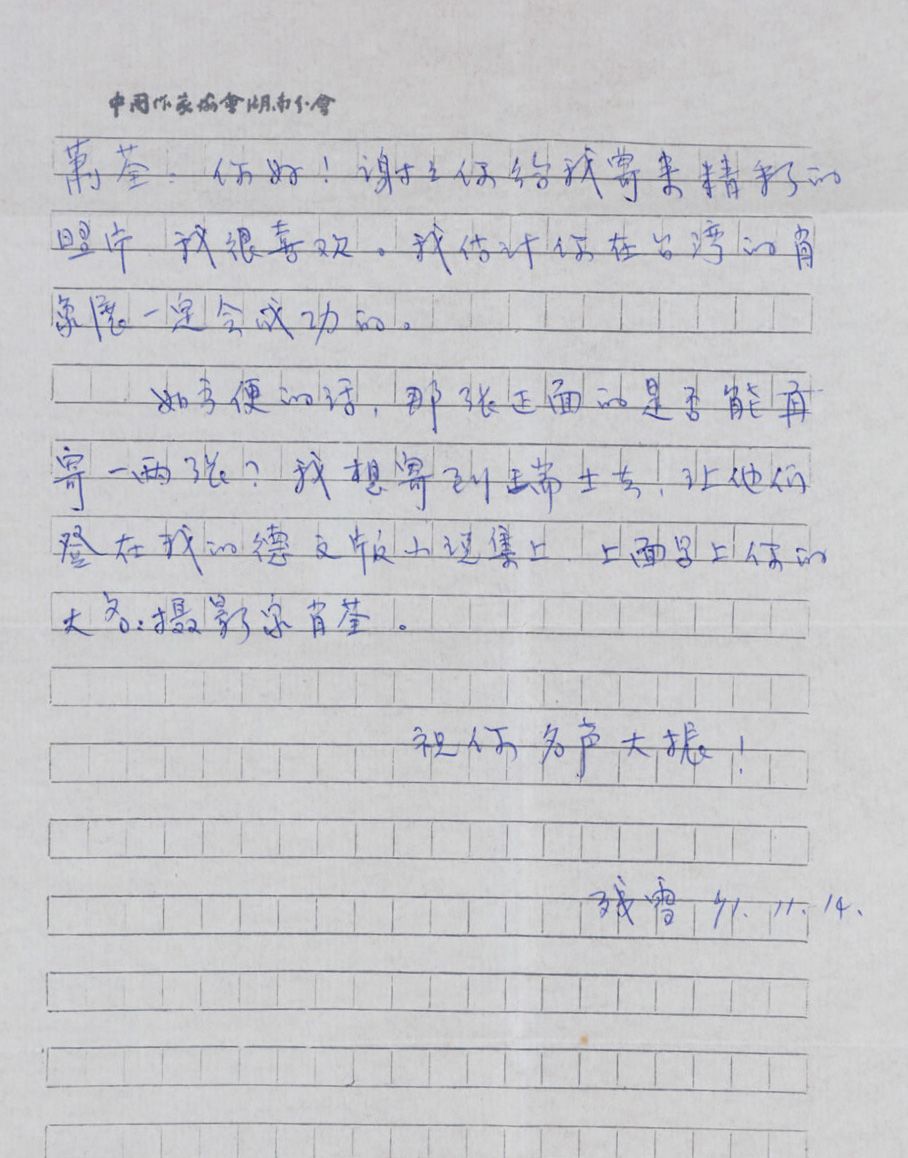 中国作家協會湖南分會
萧荃：你好！谢谢你给我寄来精彩的
照片 我很喜欢。我估计你在台湾的肖
象展一定会成功的。
如方便的话，那张正面的是否能再
寄一两张？我想寄到瑞士去，让他们
登在我的德文版小说集上 上面写上你的
大名：摄影家肖荃。
祝你名声大振！
残雪 91.11.14.